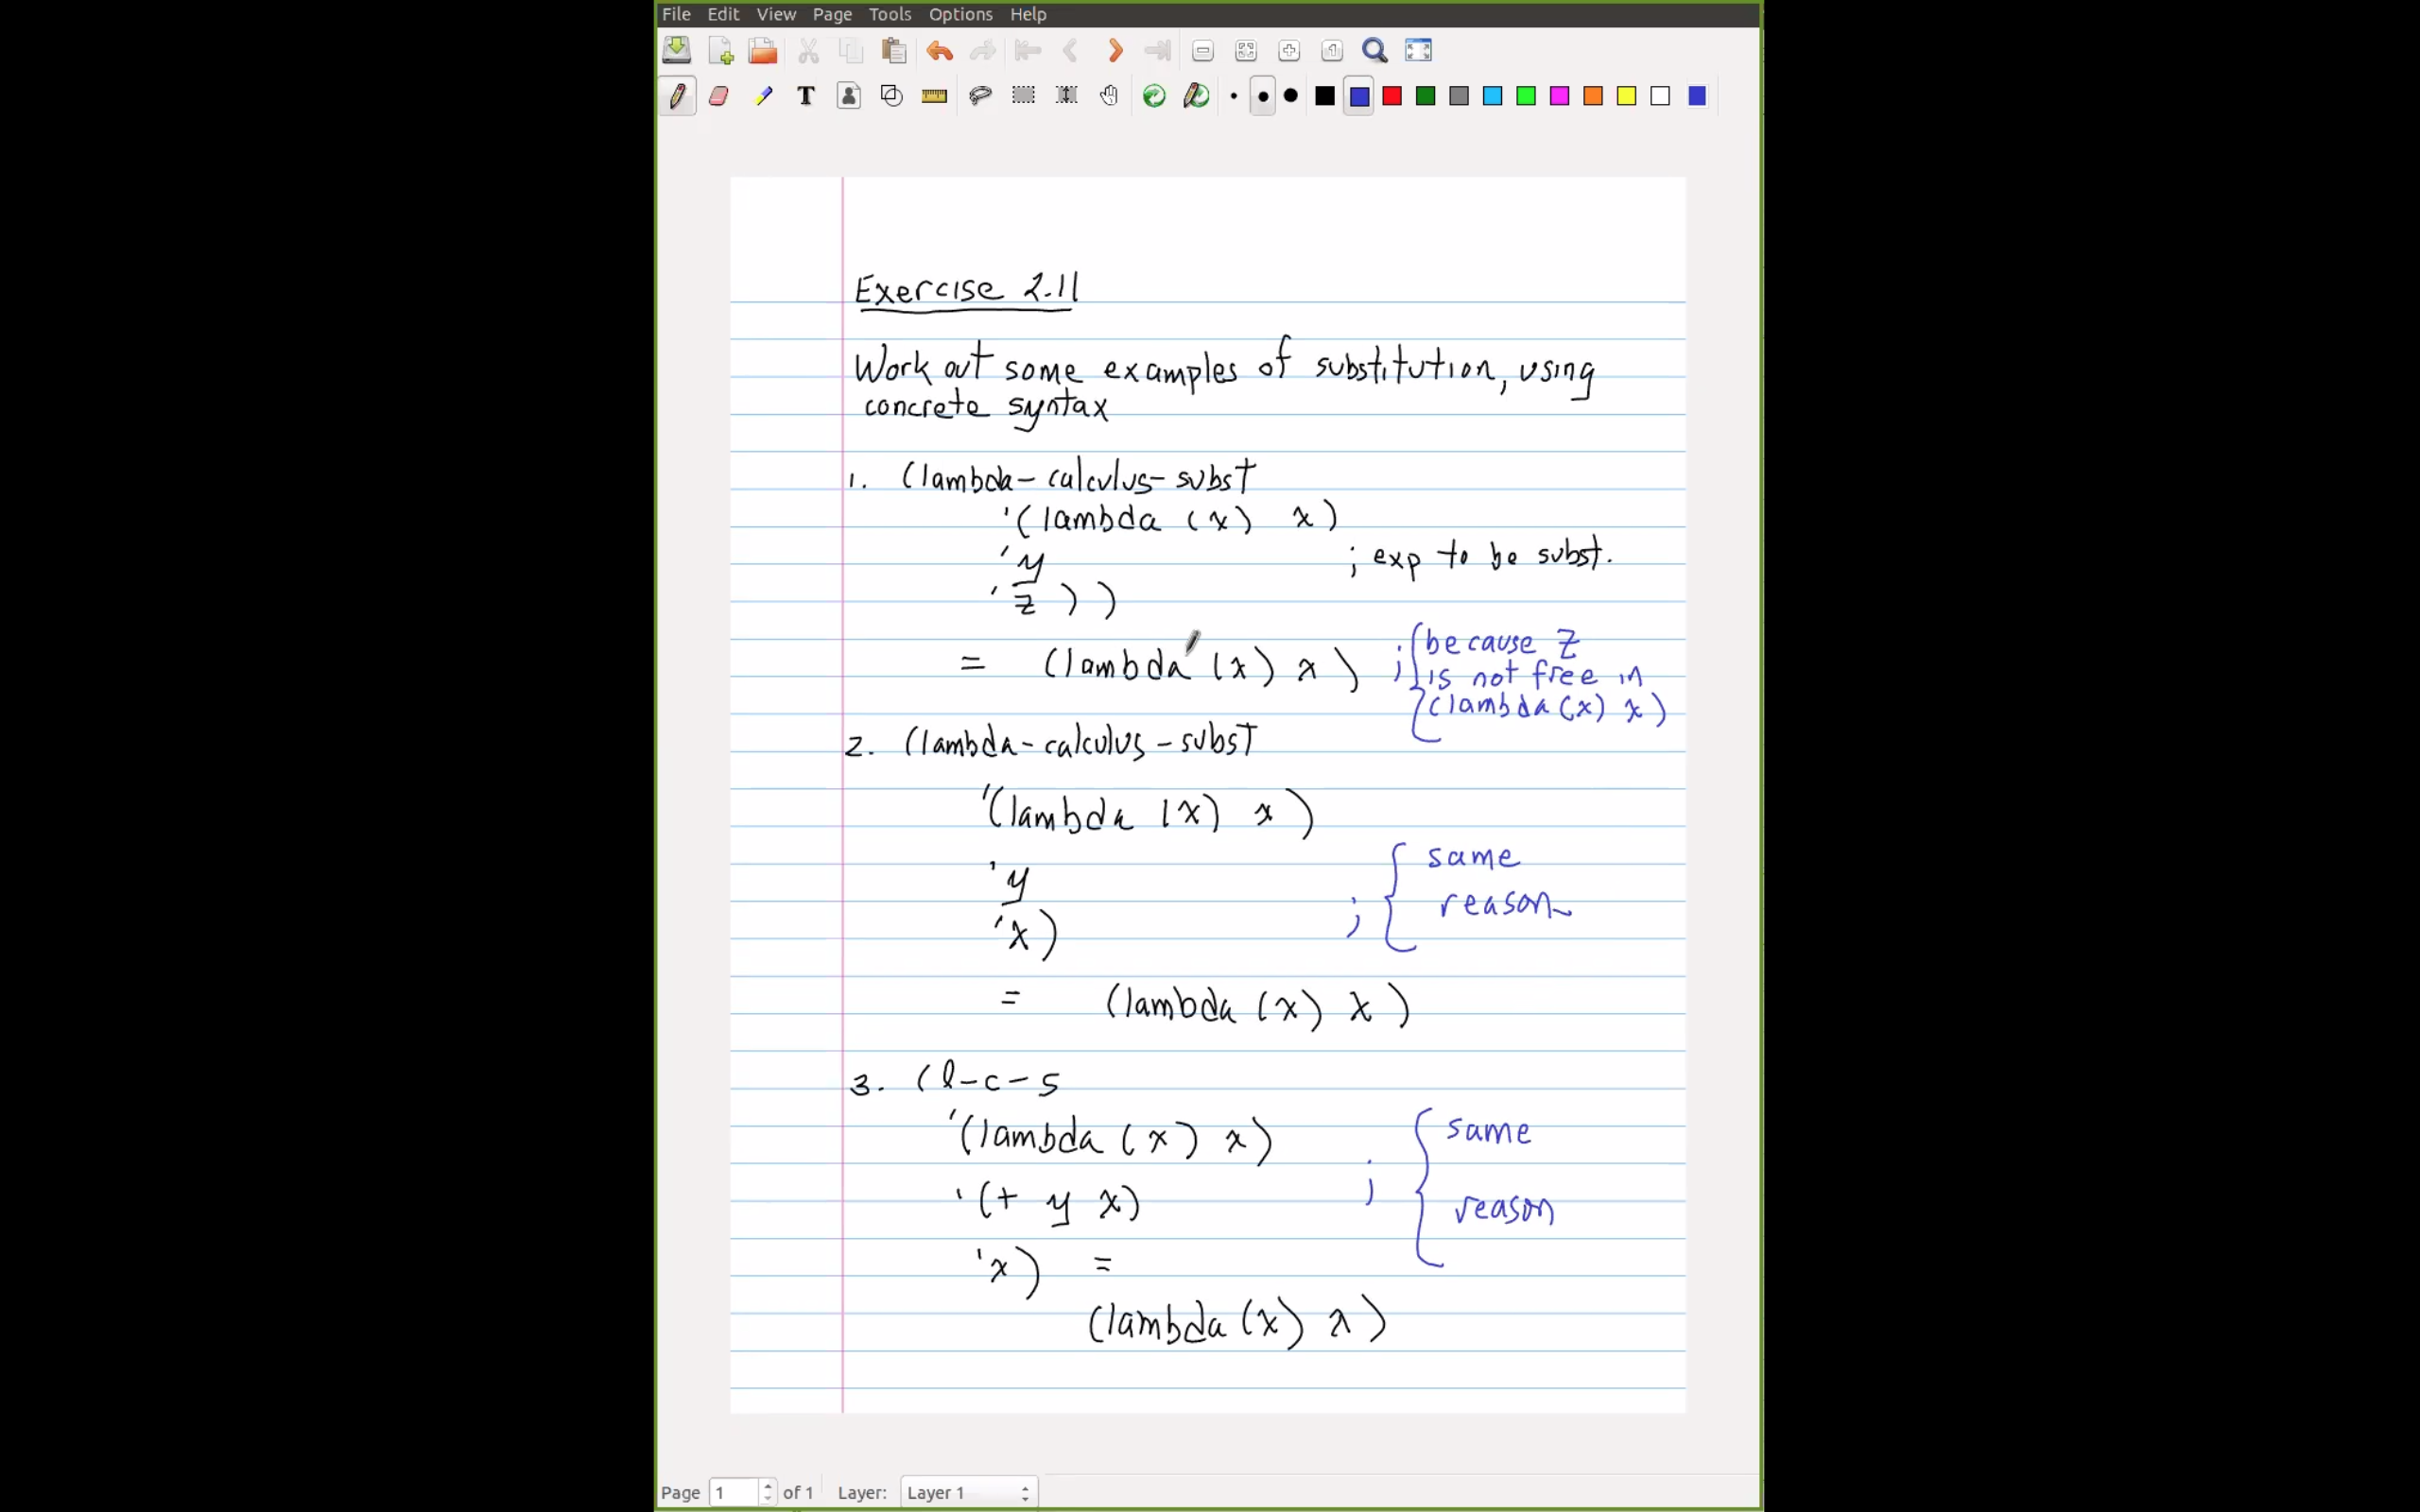 File Edit View Page Tools Options Help
T
Exercise 2.11
Work out some examples of substitution, using
concrete syntax
1. (lambda-calculus-subst
'(lambda (x) x)
'y ; exp to be subst.
'z))
= (lambda (x) x) ; { because z
is not free in
(lambda (x) x)
2. (lambda-calculus-subst
'(lambda (x) x)
'y ; { same
reason
'x)
= (lambda (x) x)
3. (l-c-s
'(lambda (x) x) ; { same
'(+ y x) reason
'x) =
(lambda (x) x)
Page 1 of 1 Layer: Layer 1